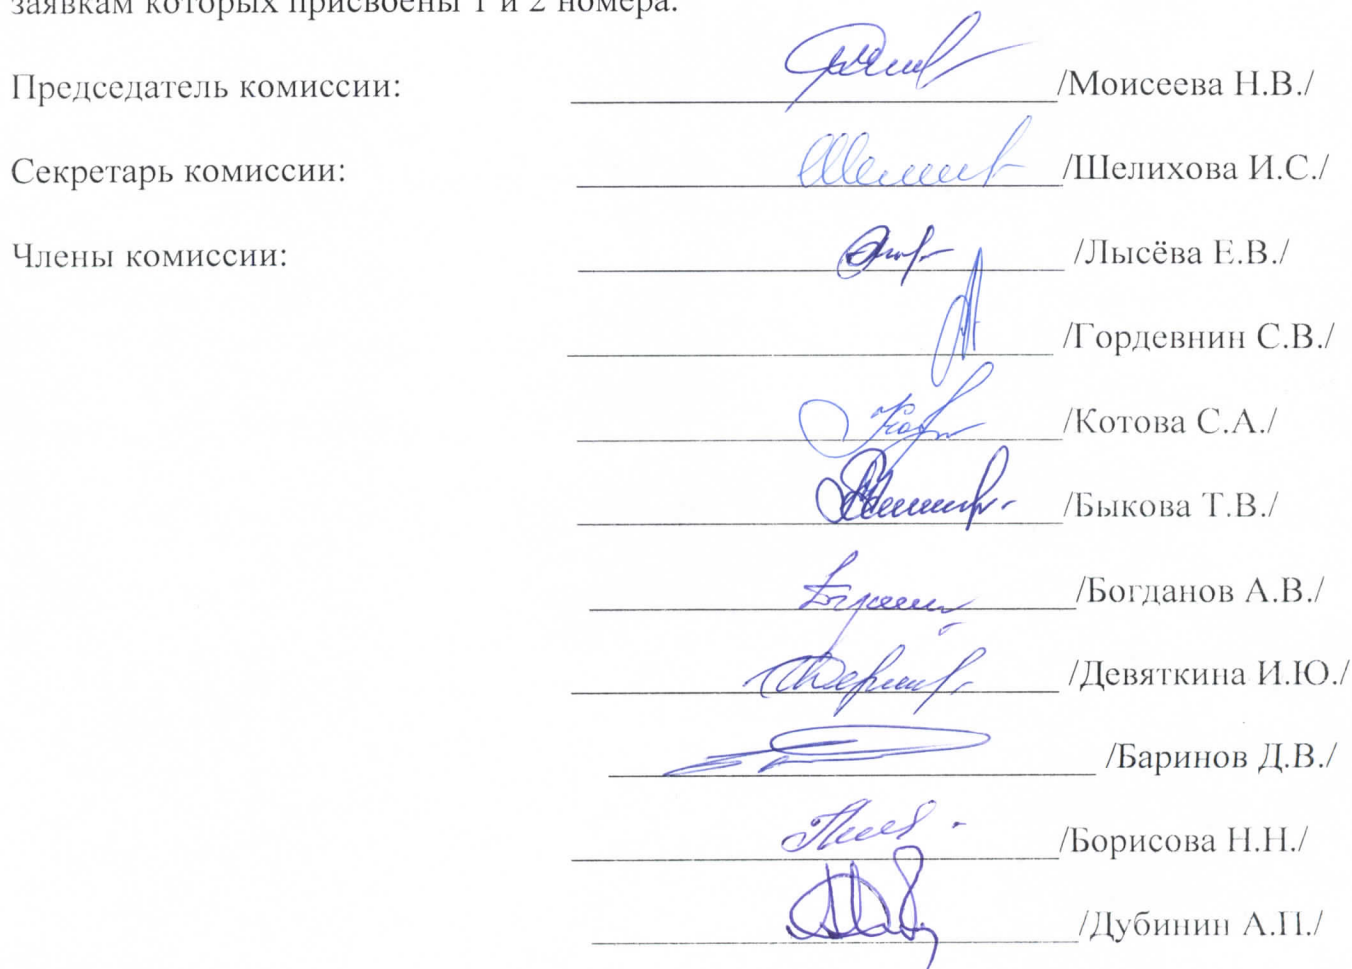 заявкам которых присвоены 1 и 2 номера.
Председатель комиссии: /Моисеева Н.В./
Секретарь комиссии: /Шелихова И.С./
Члены комиссии: /Лысёва Е.В./
/Гордевнин С.В./
/Котова С.А./
/Быкова Т.В./
/Богданов А.В./
/Девяткина И.Ю./
/Баринов Д.В./
/Борисова Н.Н./
/Дубинин А.П./